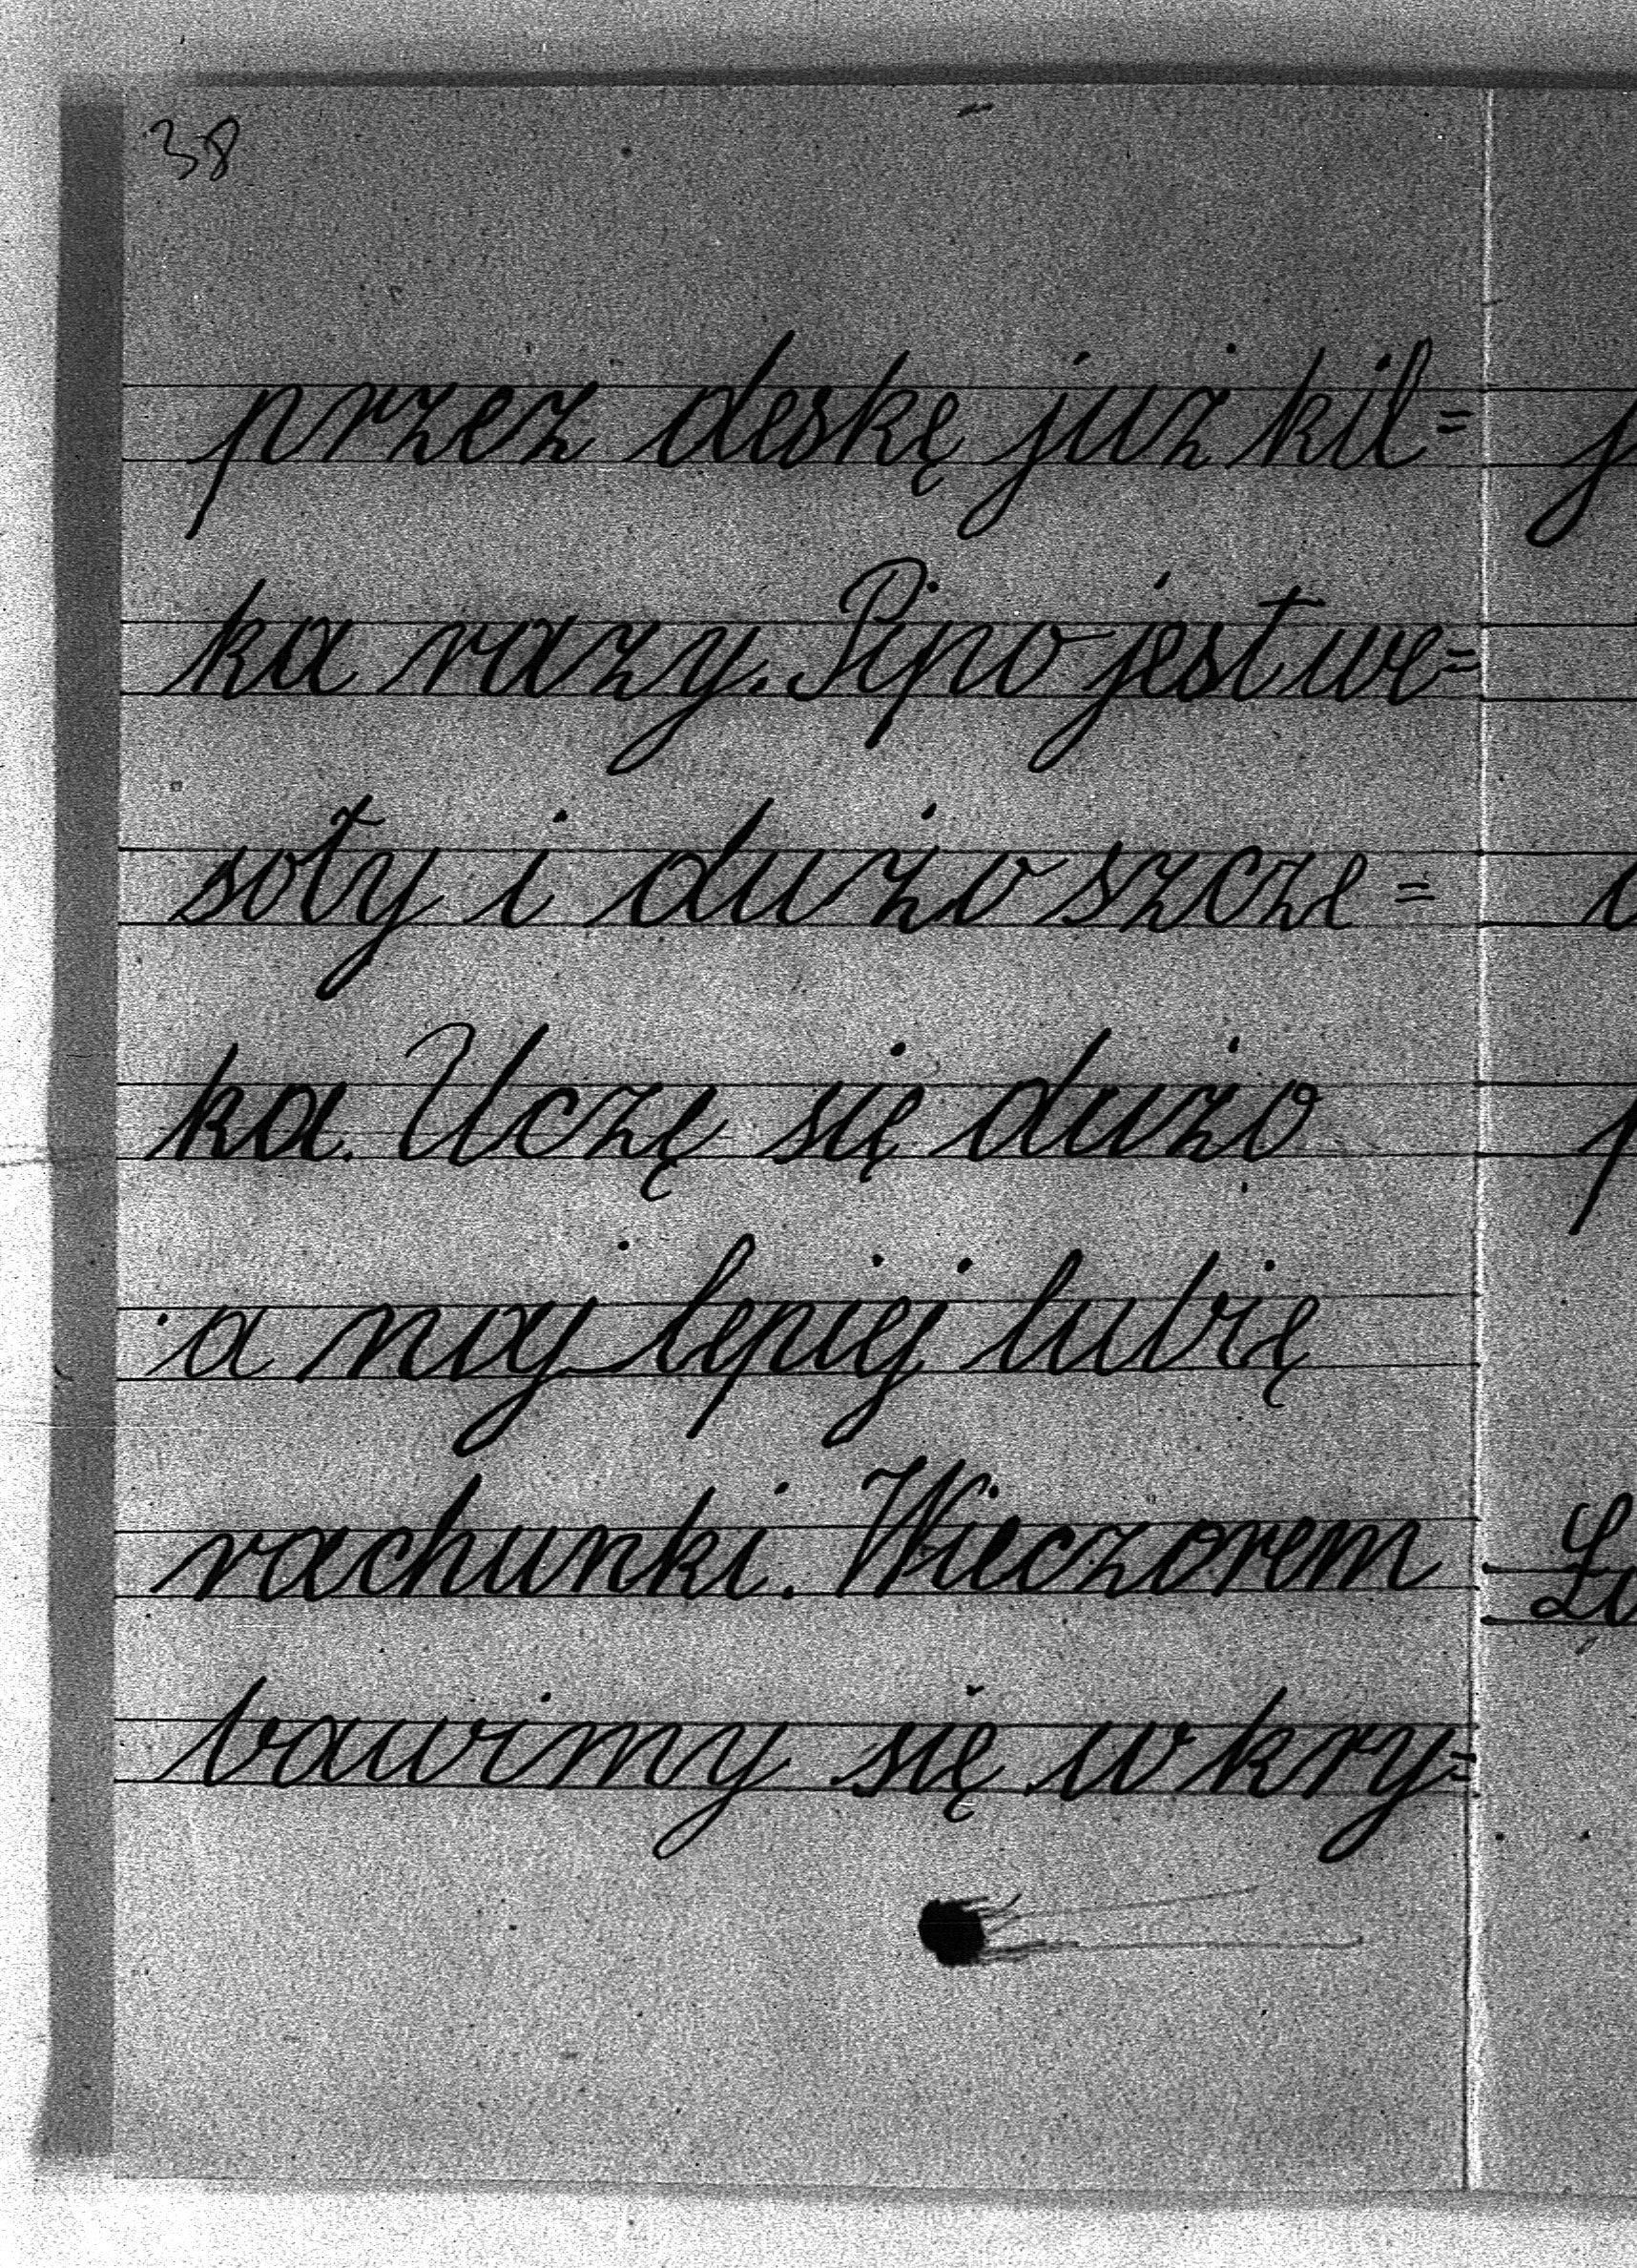 38
przez deskę już kil=
ka razy. Pipo jest we=
soły i dużo szcze=
ka. Uczę się dużo
a naj lepiej lubię
rachunki. Wieczorem
bawimy się w kry=